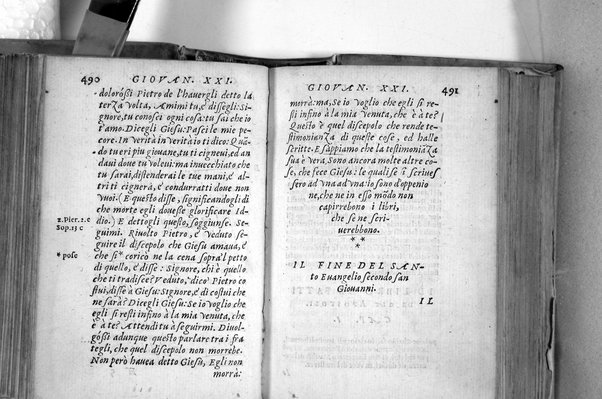 490 GIOVAN. XXI.
doloróssi Pietro de l'hauergli detto la
terza volta, Amimi tu, e dissegli: Si-
gnore, tu conosci ogni cosa: tu sai che io
t'amo. Dicegli Giesu: Pasci le mie pe-
core. In verità in verità io ti dico: Quã-
do tu eri piu giouane, tu ti cigneui, ed an
daui doue tu voleui: ma inuecchiato che
tu sarai, distenderai le tue mani, e al-
tri ti cignerà, e condurratti doue non
vuoi. (E questo disse, significandogli di
che morte egli douesse glorificare Id-
2. Pier. 1. c
dio.) E dettogli questo, soggiunse. Se-
Sop. 13 c
guimi. Riuolto Pietro, e veduto se-
guire il discepolo che Giesu amaua, e
* pose
che si* coricò ne la cena sopra'l petto
di quello, e disse: Signore, chi è quello
che ti tradisce? Veduto, dico Pietro co
stui, disse à Giesu: Signore, e di costui che
ne sarà? Dicegli Giesu: Se io voglio che
egli si resti infino à la mia venuta, che
è à te? Attendi tu à seguirmi. Diuol-
góssi adunque questo parlare tra i fra
tegli, che quel discepolo non morrebe.
Non però hauea detto Giesu, Egli non
morrà:
GIOVAN. XXI. 491
morrà: ma, Se io voglio che egli si re
sti infino à la mia venuta, che è à te?
Questo è quel discepolo che rende testi-
monianza di queste cose, ed halle
scritte. E sappiamo che la testimoniãza
sua è vera. Sono ancora molte altre co-
se, che fece Giesu: le quali se si scriues
sero ad vna ad vna: io sono d'oppenio
ne, che ne in esso mõdo non
capirrebono i libri,
che se ne scri-
uerebbono.
* *
*
IL FINE DEL SAN-
to Euangelio secondo san
Giouanni.
IL